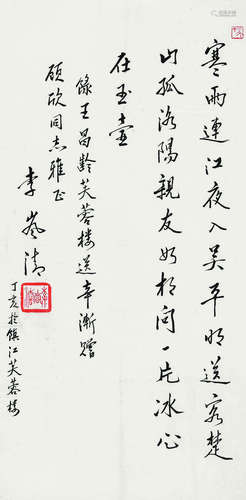 寒雨連江夜入吴平明送客楚
山孤洛陽親友如相问一片冰心
在玉壺
錄王昌齡芙蓉楼送辛漸赠
顾欣同志雅正
李岚清
丁亥於镇江芙蓉楼